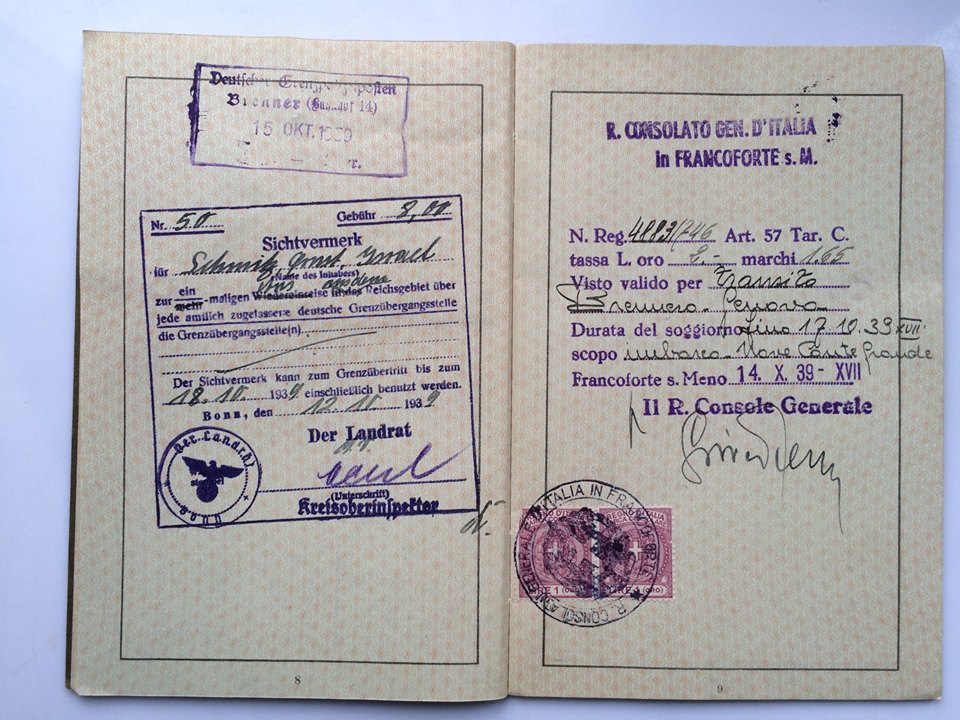 Deutscher Grenzpolizeiposten
Brenner (Bahnhof 14)
15 OKT. 1939
Nr. 50 Gebühr 8,00
Sichtvermerk
für Schmitz, Ernst, Israel
(Name des Inhabers)
ein aus dem
zur mehr-maligen Wiedereinreise in das Reichsgebiet über
jede amtlich zugelassene deutsche Grenzübergangsstelle
die Grenzübergangsstelle(n)
Der Sichtvermerk kann zum Grenzübertritt bis zum
18.10. 1939 einschließlich benutzt werden.
Bonn, den 12.10. 1939
Der Landrat
(Unterschrift)
Kreisoberinspektor
Der Landrat
Bonn
8
R. CONSOLATO GEN. D'ITALIA
in FRANCOFORTE s. M.
N. Reg. 4883/746 Art. 57 Tar. C.
tassa L. oro 2.- marchi 1.65
Visto valido per Transito
Brennero - Genova
Durata del soggiorno fino 17.10.39 XVII
scopo imbarco - Nave Conte Grande
Francoforte s. Meno 14. X. 39 - XVII
Il R. Console Generale
R. CONSOLATO GENERALE D'ITALIA IN FRANCOFORTE
LIRE 1 (ORO)
9